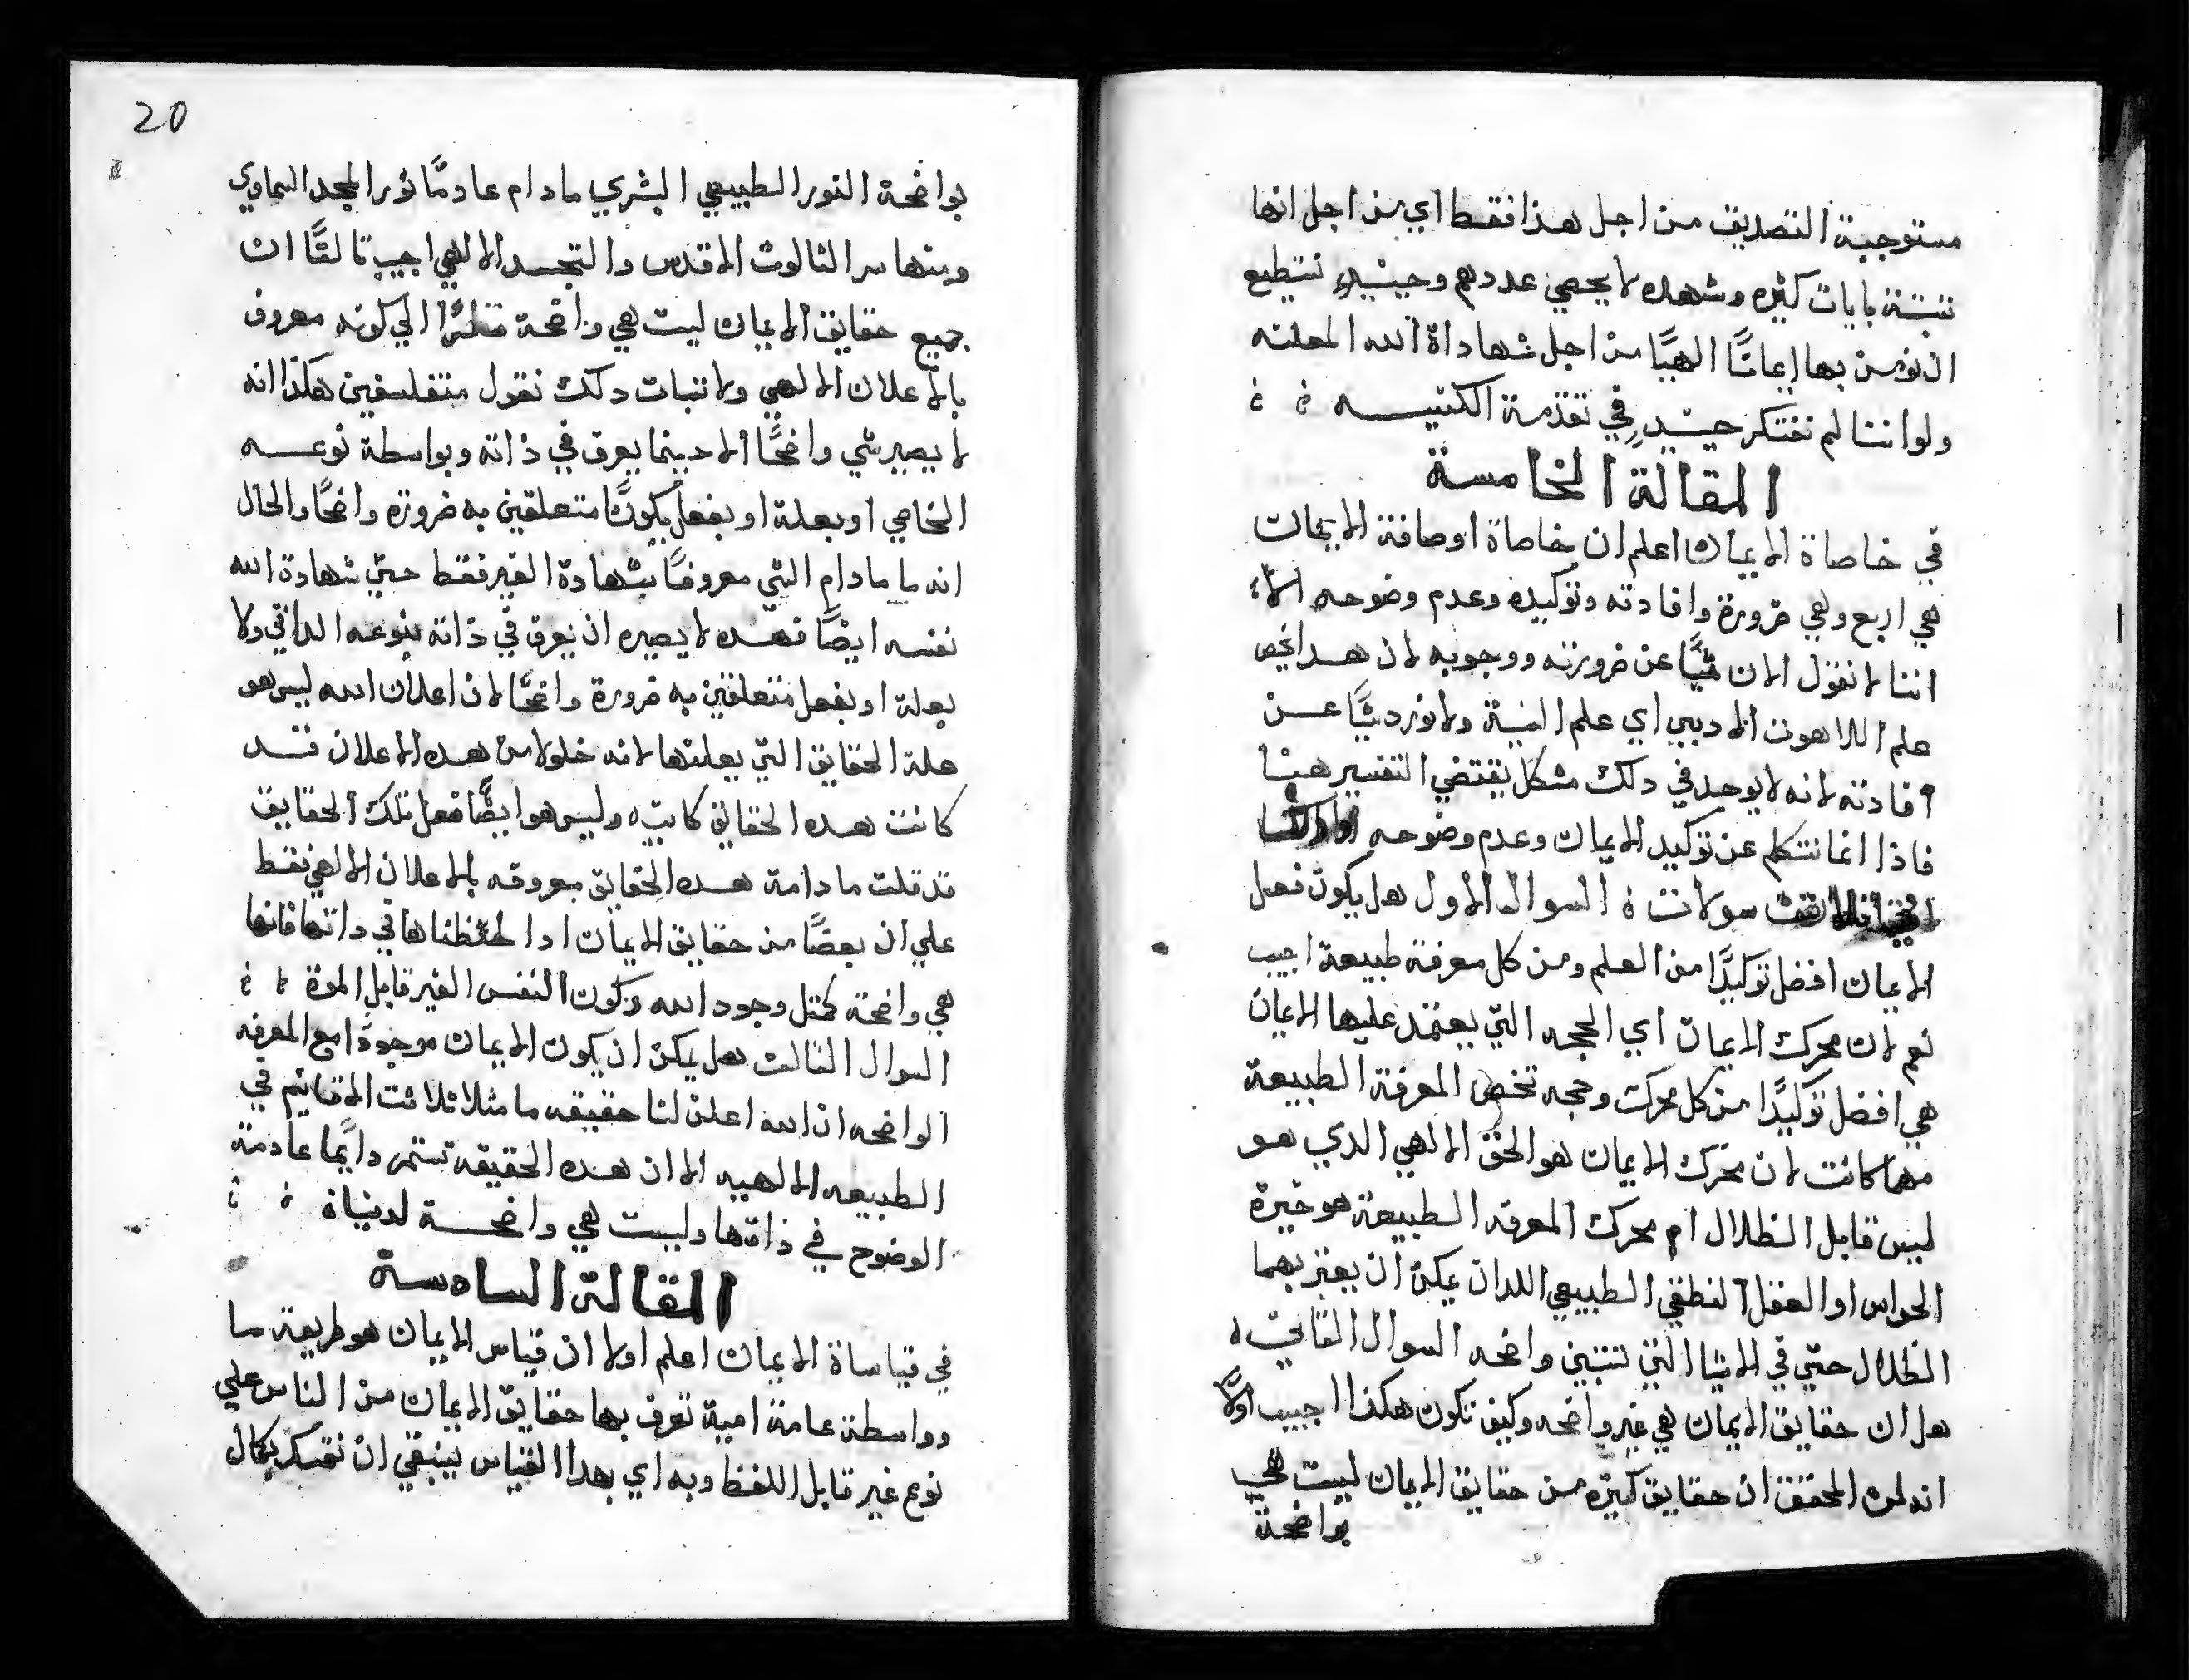 مستوجبة التصديق من اجل هذا فقط اي من اجل انها
تتبتة بايات كثيره وشهدا لا يحصي عددهم وحينيدٍ نستطيع
ان نومن بها ايمانًا الهيًا من اجل شهاداة الله المعلنه
ولو اننا لم نفتكر حينيدٍ في تقدمة الكنيسه
المقالة الخامسة
في خاصاة الايمان اعلم ان خاصاة اوصافة الايمان
هي اربع وهي ضرورة وافادته وتوكيده وعدم وضوحه الا
اننا لا نقول الان شيًا عن ضرورته ووجوبه لان هدا يخص
علم اللاهوت الادبي اي علم النية ولا نورد شيًا عن
افادته لانه لا يوجد في دلك مشكل يقتضي التفسير هنا
فاذا انما نتكلم عن توكيد الايمان وعدم وضوحه
سولات السوال الاول هل يكون فعل
الايمان افضل توكيدًا من العلم ومن كل معرفة طبيعة اجيب
نعم لان محرك الايمان اي الحجه التي يعتمد عليها الايمان
هي افضل توكيدًا من كل محرك وحجه تخص المعرفة الطبيعة
مهما كانت لان محرك الايمان هو الحق الالهي الدي هو
ليس قابل الظلال ام محرك المعرفه الطبيعة هو خيرة
الحواس او العقل النطقي الطبيعي اللدان يمكن ان يعتربهما
الظلال حتي في الاشيا التي تتبين واضحه السوال التاني
هل ان حقايق الايمان هي غير واضحه وكيف تكون هكذا اجيب اولًا
انه لمن المحقق ان حقايق كثيره من حقايق الايمان ليست هي
بواضحة
20
بواضحة النور الطبيعي البشري ما دام عادمًا نور المجد السماوي
ومنها سر الثالوث الاقدس والتجسد الالهي اجيب تالتًا ان
جميع حقايق الايمان ليست هي واضحة نظرًا الي كونه معروف
بالاعلان الالهي ولاتبات دلك نقول متفلسفين هكذا انه
لا يصير شي واضحًا الا حينما يعرف في ذاته وبواسطة نوعه
الخاصي او بعلة او بفعل يكونًا متعلقين به ضرورة واضحًا والحال
انه ما مادام الشي معروفًا بشهادة الغير فقط حتي شهادة الله
نفسه ايضًا فهده لا يصيره ان يعرف في ذاته بنوعه الداتي ولا
بعلة او بفعل متعلقين به ضرورة واضحًا لان اعلان الله ليس هو
علة الحقايق التي يعلنها لانه خلولا من هده الاعلان قد
كانت هده الحقايق كاينه وليس هو ايضًا فعل تلك الحقايق
قد قلت ما دامة هده الحقايق معروفه بالاعلان الالهي فقط
علي ان بعضًا من حقايق الايمان ادا لحظناها في داتها فانها
هي واضحة كمتل وجود الله وكون النفس الغير قابل الموة
السوال التالت هل يمكن ان يكون الايمان موجودًا مع المعرفه
الواضحه ان الله اعلن لنا حقيقه ما مثلا ثلاثت الاقانيم في
الطبيعه الالهيه الا ان هده الحقيقه تستمر دايمًا عادمة
الوضوح في ذاتها وليست هي واضحة لدنياة
المقالة السادسة
في قياساة الايمان اعلم اولا ان قياس الايمان هو طريعة ما
وواسطة عامة امية تعرف بها حقايق الايمان من الناس علي
نوع غير قابل اللغط وبه اي بهدا القياس ينبغي ان نتمسك بكمال